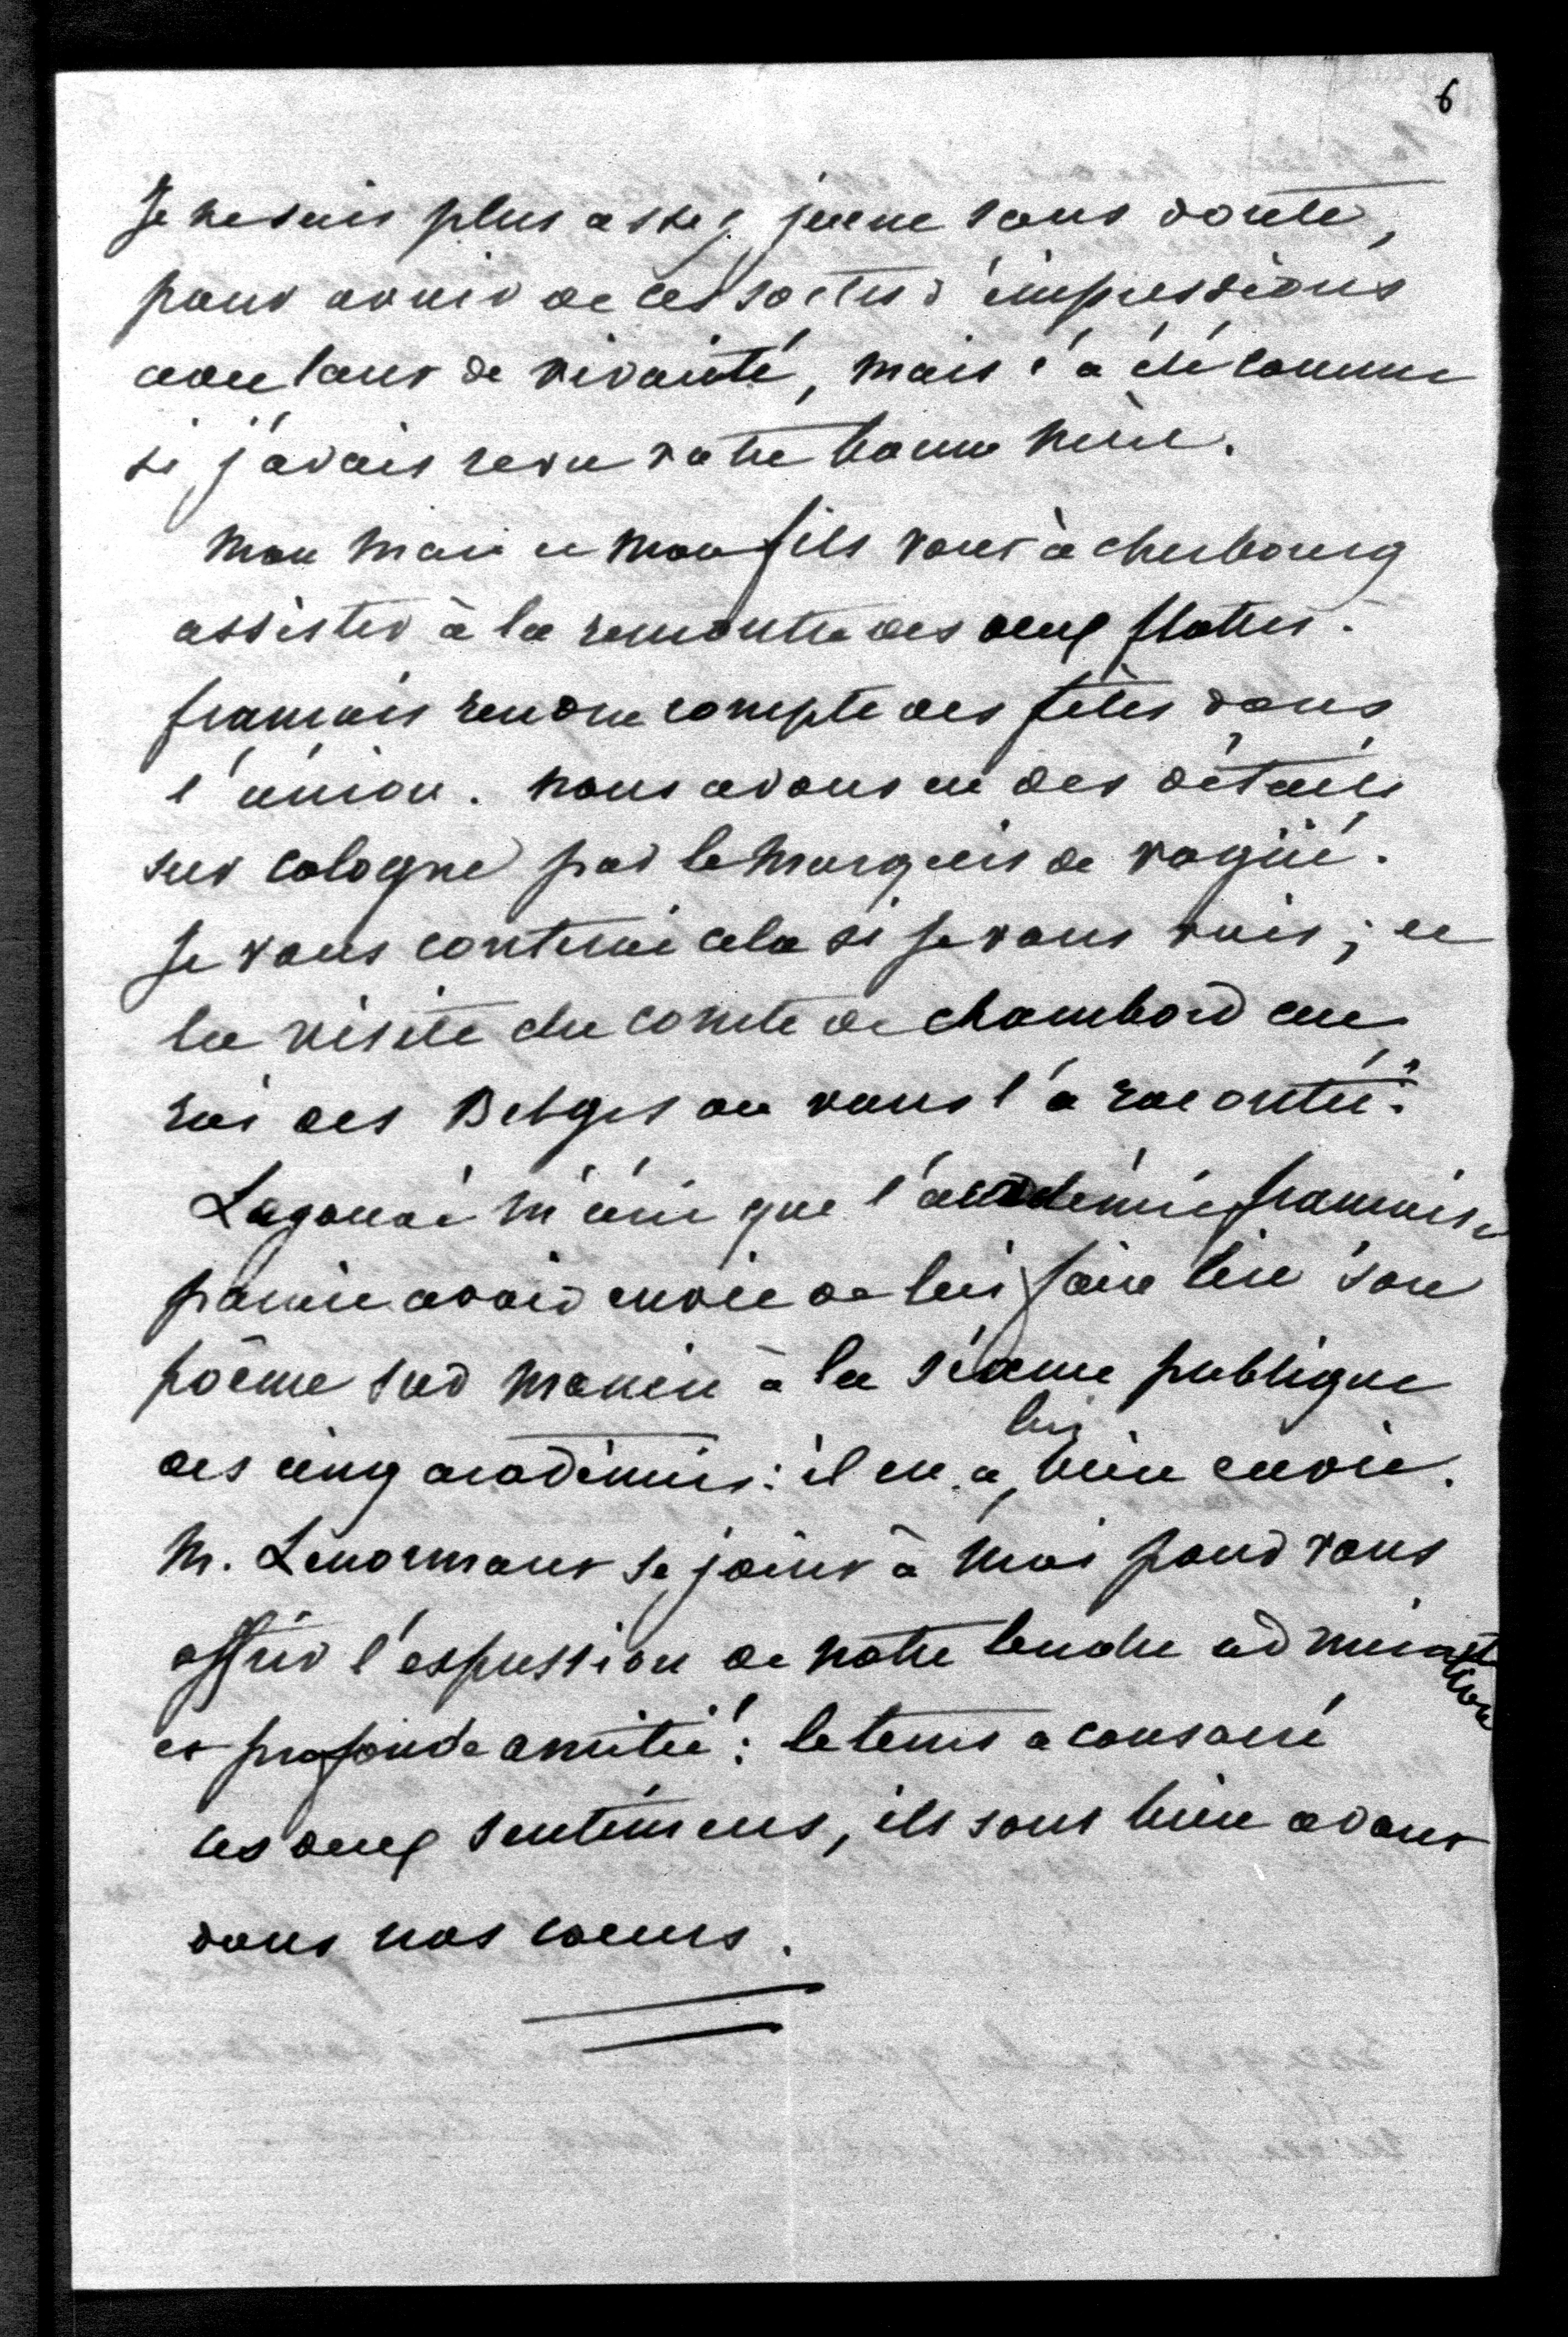 6
Je ne suis plus assez jeune sans doute,
pour avoir de ces sortes d'impressions
avec tant de vivacité, mais ç'a été comme
si j'avais revu votre bonne mère.
mon mari et mon fils vont à cherbourg
assister à la rencontre des deux flottes.
françois rendra compte des fêtes dans
l'union. nous avons eu des détails
sur cologne par le marquis de vogüé.
Je vous conterai cela si je vous vois; et
la visite du comte de chambord au
roi des Belges on vous l'a racontée.
Legouvé m'écrit que l'académie française
parait avoir envie de lui faire lire son
poême sur manin à la séance publique
des cinq académies: il en a, lui bien envie.
M. Lenormant se joint à moi pour vous
offrir l'expression de notre tendre admiration
et profonde amitié: le tems a consacré
ces deux sentimens, ils sont bien avant
dans nos coeurs.